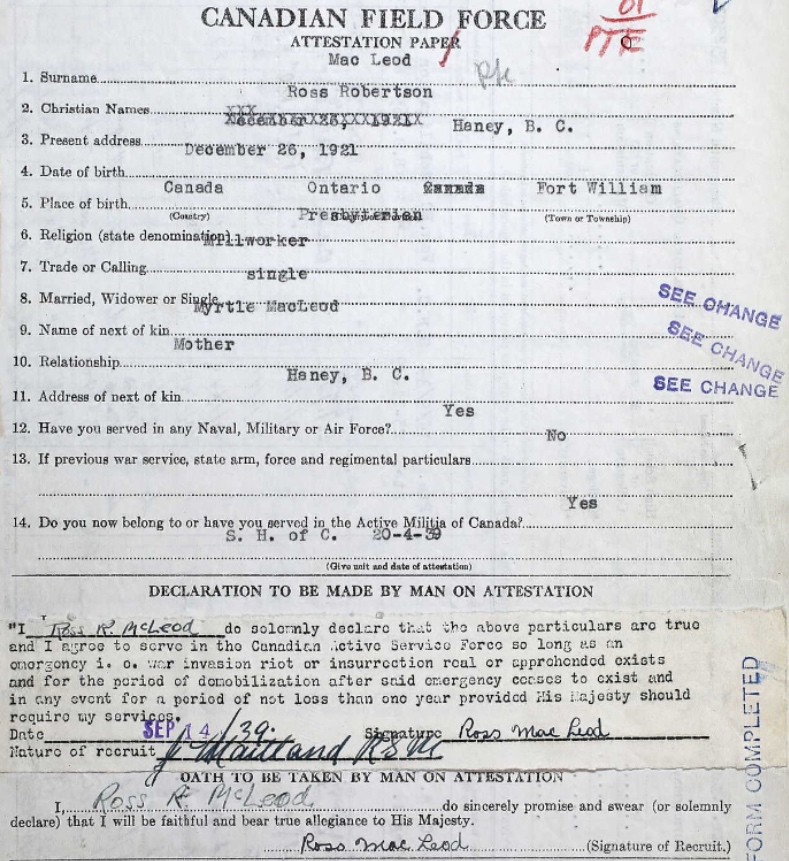 01
PTE
CANADIAN FIELD FORCE
ATTESTATION PAPER
Mac Leod
1. Surname
Ross Robertson
2. Christian Names
December 26, 1921 Haney, B. C.
3. Present address
December 26, 1921
4. Date of birth
Canada Ontario Canada Fort William
5. Place of birth
(Country) (Town or Township)
Presbyterian
6. Religion (state denomination)
Millworker
7. Trade or Calling
single
8. Married, Widower or Single
Myrtle MacLeod
SEE CHANGE
9. Name of next of kin
Mother
SEE CHANGE
10. Relationship
Haney, B. C.
SEE CHANGE
11. Address of next of kin
Yes
12. Have you served in any Naval, Military or Air Force?
No
13. If previous war service, state arm, force and regimental particulars
Yes
14. Do you now belong to or have you served in the Active Militia of Canada?
S. H. of C. 20-4-39
(Give unit and date of attestation)
DECLARATION TO BE MADE BY MAN ON ATTESTATION
"I Ross R. McLeod do solemnly declare that the above particulars are true
and I agree to serve in the Canadian Active Service Force so long as an
emergency i. e. war invasion riot or insurrection real or apprehended exists
and for the period of demobilization after said emergency ceases to exist and
in any event for a period of not less than one year provided His Majesty should
require my services.
Date SEP 14 /39. Signature Ross Mac Leod
Nature of recruit J Maitland R.S.M
OATH TO BE TAKEN BY MAN ON ATTESTATION
I, Ross R. McLeod do sincerely promise and swear (or solemnly
declare) that I will be faithful and bear true allegiance to His Majesty.
Ross Mac Leod (Signature of Recruit.)
FORM COMPLETED